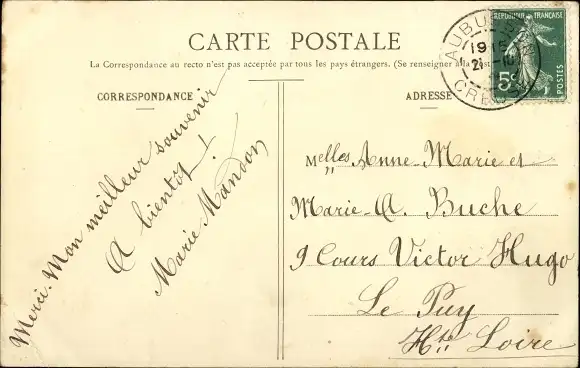 CARTE POSTALE
La Correspondance au recto n'est pas acceptée par tous les pays étrangers. (Se renseigner à la
CORRESPONDANCE
Merci. Mon meilleur souvenir
A bientôt !
Marie Mandon
ADRESSE
Melles Anne-Marie et
Marie-A. Buche
9 Cours Victor Hugo
Le Puy
Hte Loire
REPUBLIQUE FRANÇAISE
5c
POSTES
AUBUSSON
CREUSE